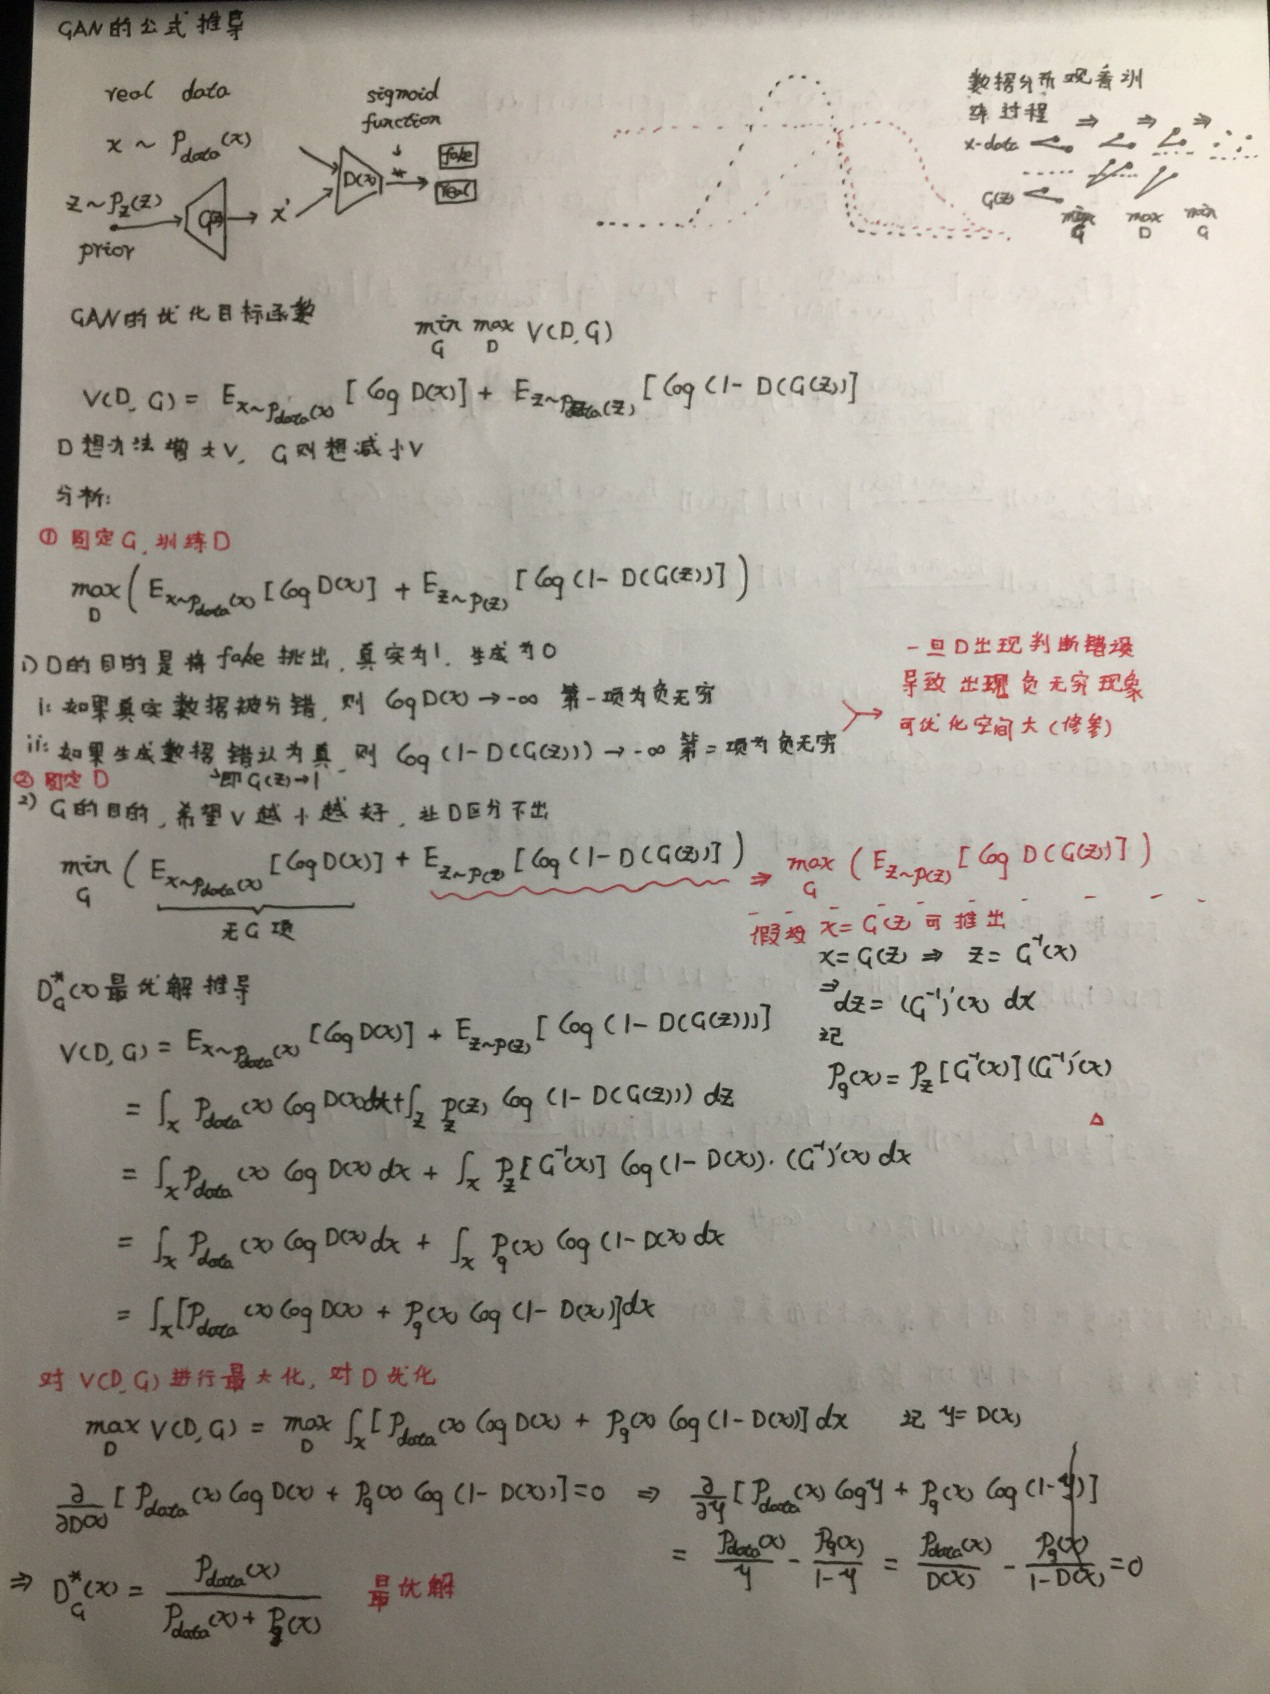 GAN的公式推导
real data
x ~ P_data(x)
z ~ P_z(z)
prior
G(z)
x'
D(x)
sigmoid
function
fake
real
数据分布观看训
练过程
x-data
G(z)
min G
max D
min G
GAN的优化目标函数
min_G max_D V(D,G)
V(D,G) = E_{x~P_data(x)} [log D(x)] + E_{z~P_z(z)} [log(1-D(G(z))]
D想办法增大V, G则想减小V
分析:
① 固定G, 训练D
max_D ( E_{x~P_data(x)} [log D(x)] + E_{z~P(z)} [log(1-D(G(z))] )
1) D的目的是将fake挑出, 真实为1, 生成为0
i: 如果真实数据被分错, 则 log D(x) → -∞ 第一项为负无穷
ii: 如果生成数据错认为真, 则 log(1-D(G(z))) → -∞ 第二项为负无穷
即G(z)→1
一旦D出现判断错误
导致出现负无穷现象
可优化空间大(修参)
② 固定D
2) G的目的, 希望V越小越好, 让D区分不出
min_G ( E_{x~P_data(x)} [log D(x)] + E_{z~P(z)} [log(1-D(G(z))] ) ⇒ max_G ( E_{z~P(z)} [log D(G(z))] )
无G项
假如 x=G(z) 可推出
x=G(z) ⇒ z=G⁻¹(x)
⇒ dz = (G⁻¹)'(x) dx
记
P_g(x) = P_z[G⁻¹(x)](G⁻¹)'(x)
△
D*_G(x)最优解推导
V(D,G) = E_{x~P_data(x)} [log D(x)] + E_{z~P(z)} [log(1-D(G(z)))]
= ∫_x P_data(x) log D(x)dx + ∫_z P_z(z) log(1-D(G(z))) dz
= ∫_x P_data(x) log D(x) dx + ∫_x P_z[G⁻¹(x)] log(1-D(x))·(G⁻¹)'(x) dx
= ∫_x P_data(x) log D(x) dx + ∫_x P_g(x) log(1-D(x) dx
= ∫_x [P_data(x) log D(x) + P_g(x) log(1-D(x)]dx
对 V(D,G) 进行最大化, 对D优化
max_D V(D,G) = max_D ∫_x [P_data(x) log D(x) + P_g(x) log(1-D(x)] dx 记 y=D(x)
∂/∂D(x) [P_data(x) log D(x) + P_g(x) log(1-D(x)]=0 ⇒ ∂/∂y [P_data(x) log y + P_g(x) log(1-y)]
= P_data(x)/y - P_g(x)/1-y = P_data(x)/D(x) - P_g(x)/1-D(x) =0
⇒ D*_G(x) = P_data(x)/P_data(x)+P_g(x) 最优解